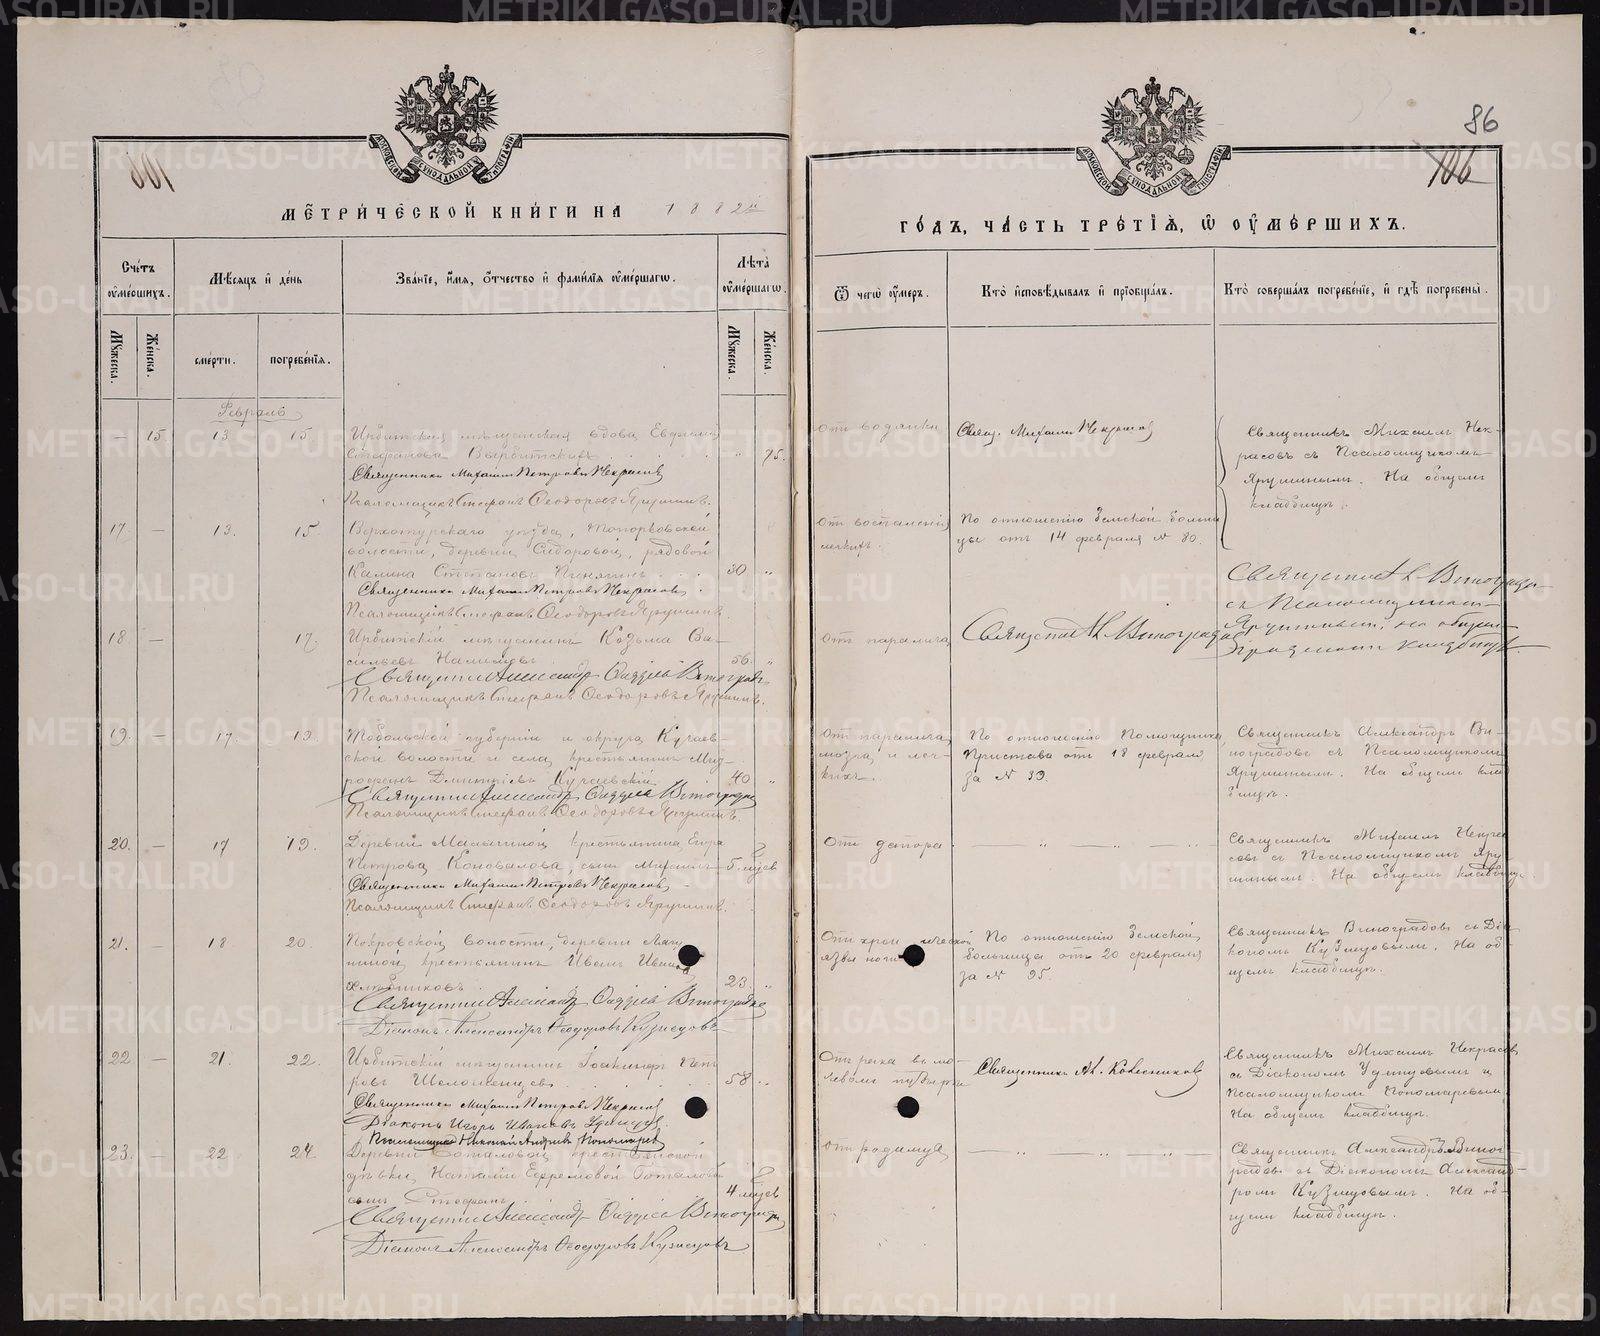 86
106
МОСКОВСКОЙ СѴНОДАЛЬНОЙ ТИПОГРАФІИ
МЕТРИЧЕСКОЙ КНИГИ НА 1882й
ГОДЪ, ЧАСТЬ ТРЕТІЯ, Ѡ ОУМЕРШИХЪ.
Счетъ оумершихъ.
Мѣсяцъ и день
Званіе, имя, отчество и фамилія оумершагѡ.
Лѣта оумершагѡ.
Ѿ чегѡ оумеръ.
Кто исповѣдывалъ и пріобщалъ.
Кто совершалъ погребеніе, и гдѣ погребены.
Мужеска.
Женска.
смерти.
погребенія.
Мужеска.
Женска.
Февраль
— 15. 13. 15 Ирбитская мѣщанская вдова Евдокія
Стефанова 75.
Священникъ Михаилъ Петровъ Некрасовъ
Псаломщикъ Стефанъ Ѳеодоровъ Ярушинъ.
Отъ водянки
Свящ. Михаилъ Некрасовъ
Священникъ Михаилъ Нек-
расовъ съ Псаломщикомъ
Ярушинымъ. На общемъ
кладбищѣ.
17 — 13. 15. Верхотурскаго уѣзда, Топорковской
волости, деревни Сидоровой, рядовой
Калина Степановъ 30 "
Священникъ Михаилъ Петровъ Некрасовъ.
Псаломщикъ Стефанъ Ѳеодоровъ Ярушинъ.
Отъ воспаленія
легкихъ.
По отношенію Земской больни
цы отъ 14 февраля № 80.
18 — 17. Ирбитскій мѣщанинъ Козьма Ва-
сильевъ 56. "
Священникъ Александръ Виноградовъ
Псаломщикъ Стефанъ Ѳеодоровъ Ярушинъ.
Отъ паралича
Священникъ А. Виноградовъ
Священникъ А. Виноградовъ
съ Псаломщикомъ
Ярушинымъ, на общемъ
кладбищѣ.
19. — 17. 19. Тобольской губерніи и округа Кугаев-
ской волости и села, крестьянинъ
Дмитріевъ Кугаевскій. 40 "
Священникъ Александръ Виноградовъ
Псаломщикъ Стефанъ Ѳеодоровъ Ярушинъ.
Отъ паралича
мозга и лег-
кихъ.
По отношенію Помощника
Пристава отъ 18 февраля
за № 39.
Священникъ Александръ Ви-
ноградовъ съ Псаломщикомъ
Ярушинымъ. На общемъ клад
бищѣ.
20. — 17 19. Деревни Мальгиной крестьянина Егора
Петрова Коновалова, сынъ Михаилъ 5 мцев
Священникъ Михаилъ Петровъ Некрасовъ
Псаломщикъ Стефанъ Ѳеодоровъ Ярушинъ.
Отъ запора.
Священникъ Михаилъ Некра
совъ съ Псаломщикомъ Яру
шинымъ. На общемъ кладбищѣ.
21. — 18 20. Покровской волости, деревни
крестьянинъ Иванъ
Хлѣбниковъ. 23. "
Священникъ Александръ Виноградовъ
Діаконъ Александръ Ѳеодоровъ Кузнецовъ
Отъ хронической
язвы ноги
По отношенію Земской
больницы отъ 20 февраля
за № 95
Священникъ Виноградовъ съ Діа
кономъ Кузнецовымъ. На об-
щемъ кладбищѣ.
22 — 21. 22. Ирбитскій мѣщанинъ Іоакимъ Пет
ровъ Шеломенцевъ 58 "
Священникъ Михаилъ Петровъ Некрасовъ
Діаконъ Игорь Ивановъ Удинцовъ.
Псаломщикъ Николай Андреевъ Пономаревъ
Отъ рака въ мо-
чевомъ пузырѣ
Священникъ Ал. Колесниковъ
Священникъ Михаилъ Некрасовъ
съ Діакономъ Удинцовымъ и
Псаломщикомъ Пономаревымъ
На общемъ кладбищѣ.
23. — 22 24. Деревни крестьянской
дѣвки, Наталіи Ефремовой
сынъ Стефанъ 4 мцев
Священникъ Александръ Виноградовъ
Діаконъ Александръ Ѳеодоровъ Кузнецовъ
Отъ родимца
Священникъ Александръ Виног
радовъ съ Діакономъ Александ-
ромъ Кузнецовымъ. На об-
щемъ кладбищѣ.
METRIKI.GASO-URAL.RU